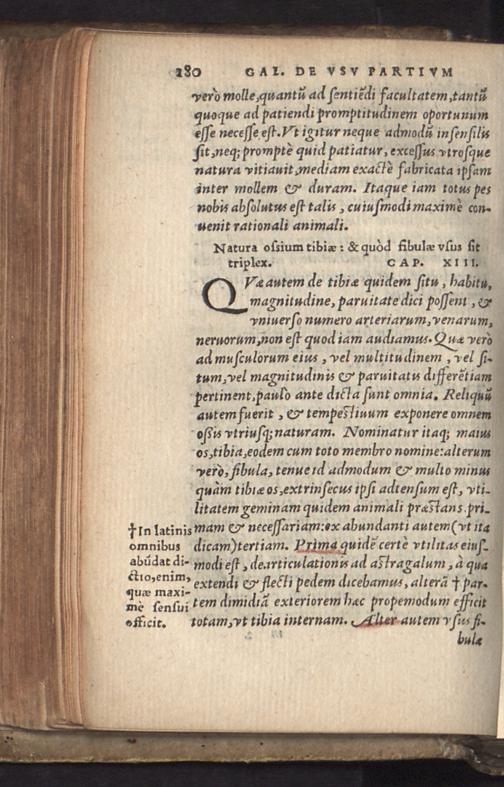 280 GAL. DE VSV PARTIVM
verò molle, quantũ ad sentiẽdi facultatem, tantũ
quoque ad patiendi promptitudinem oportunum
esse necesse est. Vt igitur neque admodũ insensilis
sit, neq; promptè quid patiatur, excessus vtrosque
natura vitiauit, mediam exactè fabricata ipsam
inter mollem & duram. Itaque iam totus pes
nobis absolutus est talis, cuiusmodi maximè con-
uenit rationali animali.
Natura ossium tibiæ: & quòd fibulæ vsus sit
triplex. CAP. XIII.
QVæ autem de tibiæ quidem situ, habitu,
magnitudine, paruitate dici possent, &
vniuerso numero arteriarum, venarum,
neruorum, non est quod iam audiamus. Quæ verò
ad musculorum eius, vel multitudinem, vel si-
tum, vel magnitudinis & paruitatis differẽtiam
pertinent, paulo ante dicta sunt omnia. Reliquũ
autem fuerit, & tempestiuum exponere omnem
ossis vtriusq; naturam. Nominatur itaq; maius
os, tibia, eodem cum toto membro nomine: alterum
verò, fibula, tenue id admodum & multo minus
quàm tibiæ os, extrinsecus ipsi adtensum est, vti-
litatem geminam quidem animali præstans. pri-
mam & necessariam: ex abundanti autem (vt ita
dicam) tertiam. Prima quidẽ certè vtilitas eius-
modi est, dearticulationis ad astragalum, à qua
extendi & flecti pedem dicebamus, alterã † par-
tem dimidiã exteriorem hæc propemodum efficit
totam, vt tibia internam. Alter autem vsus fi-
bulæ
†In latinis
omnibus
abũdat di-
ctio, enim,
quæ maxi-
mè sensui
officit.